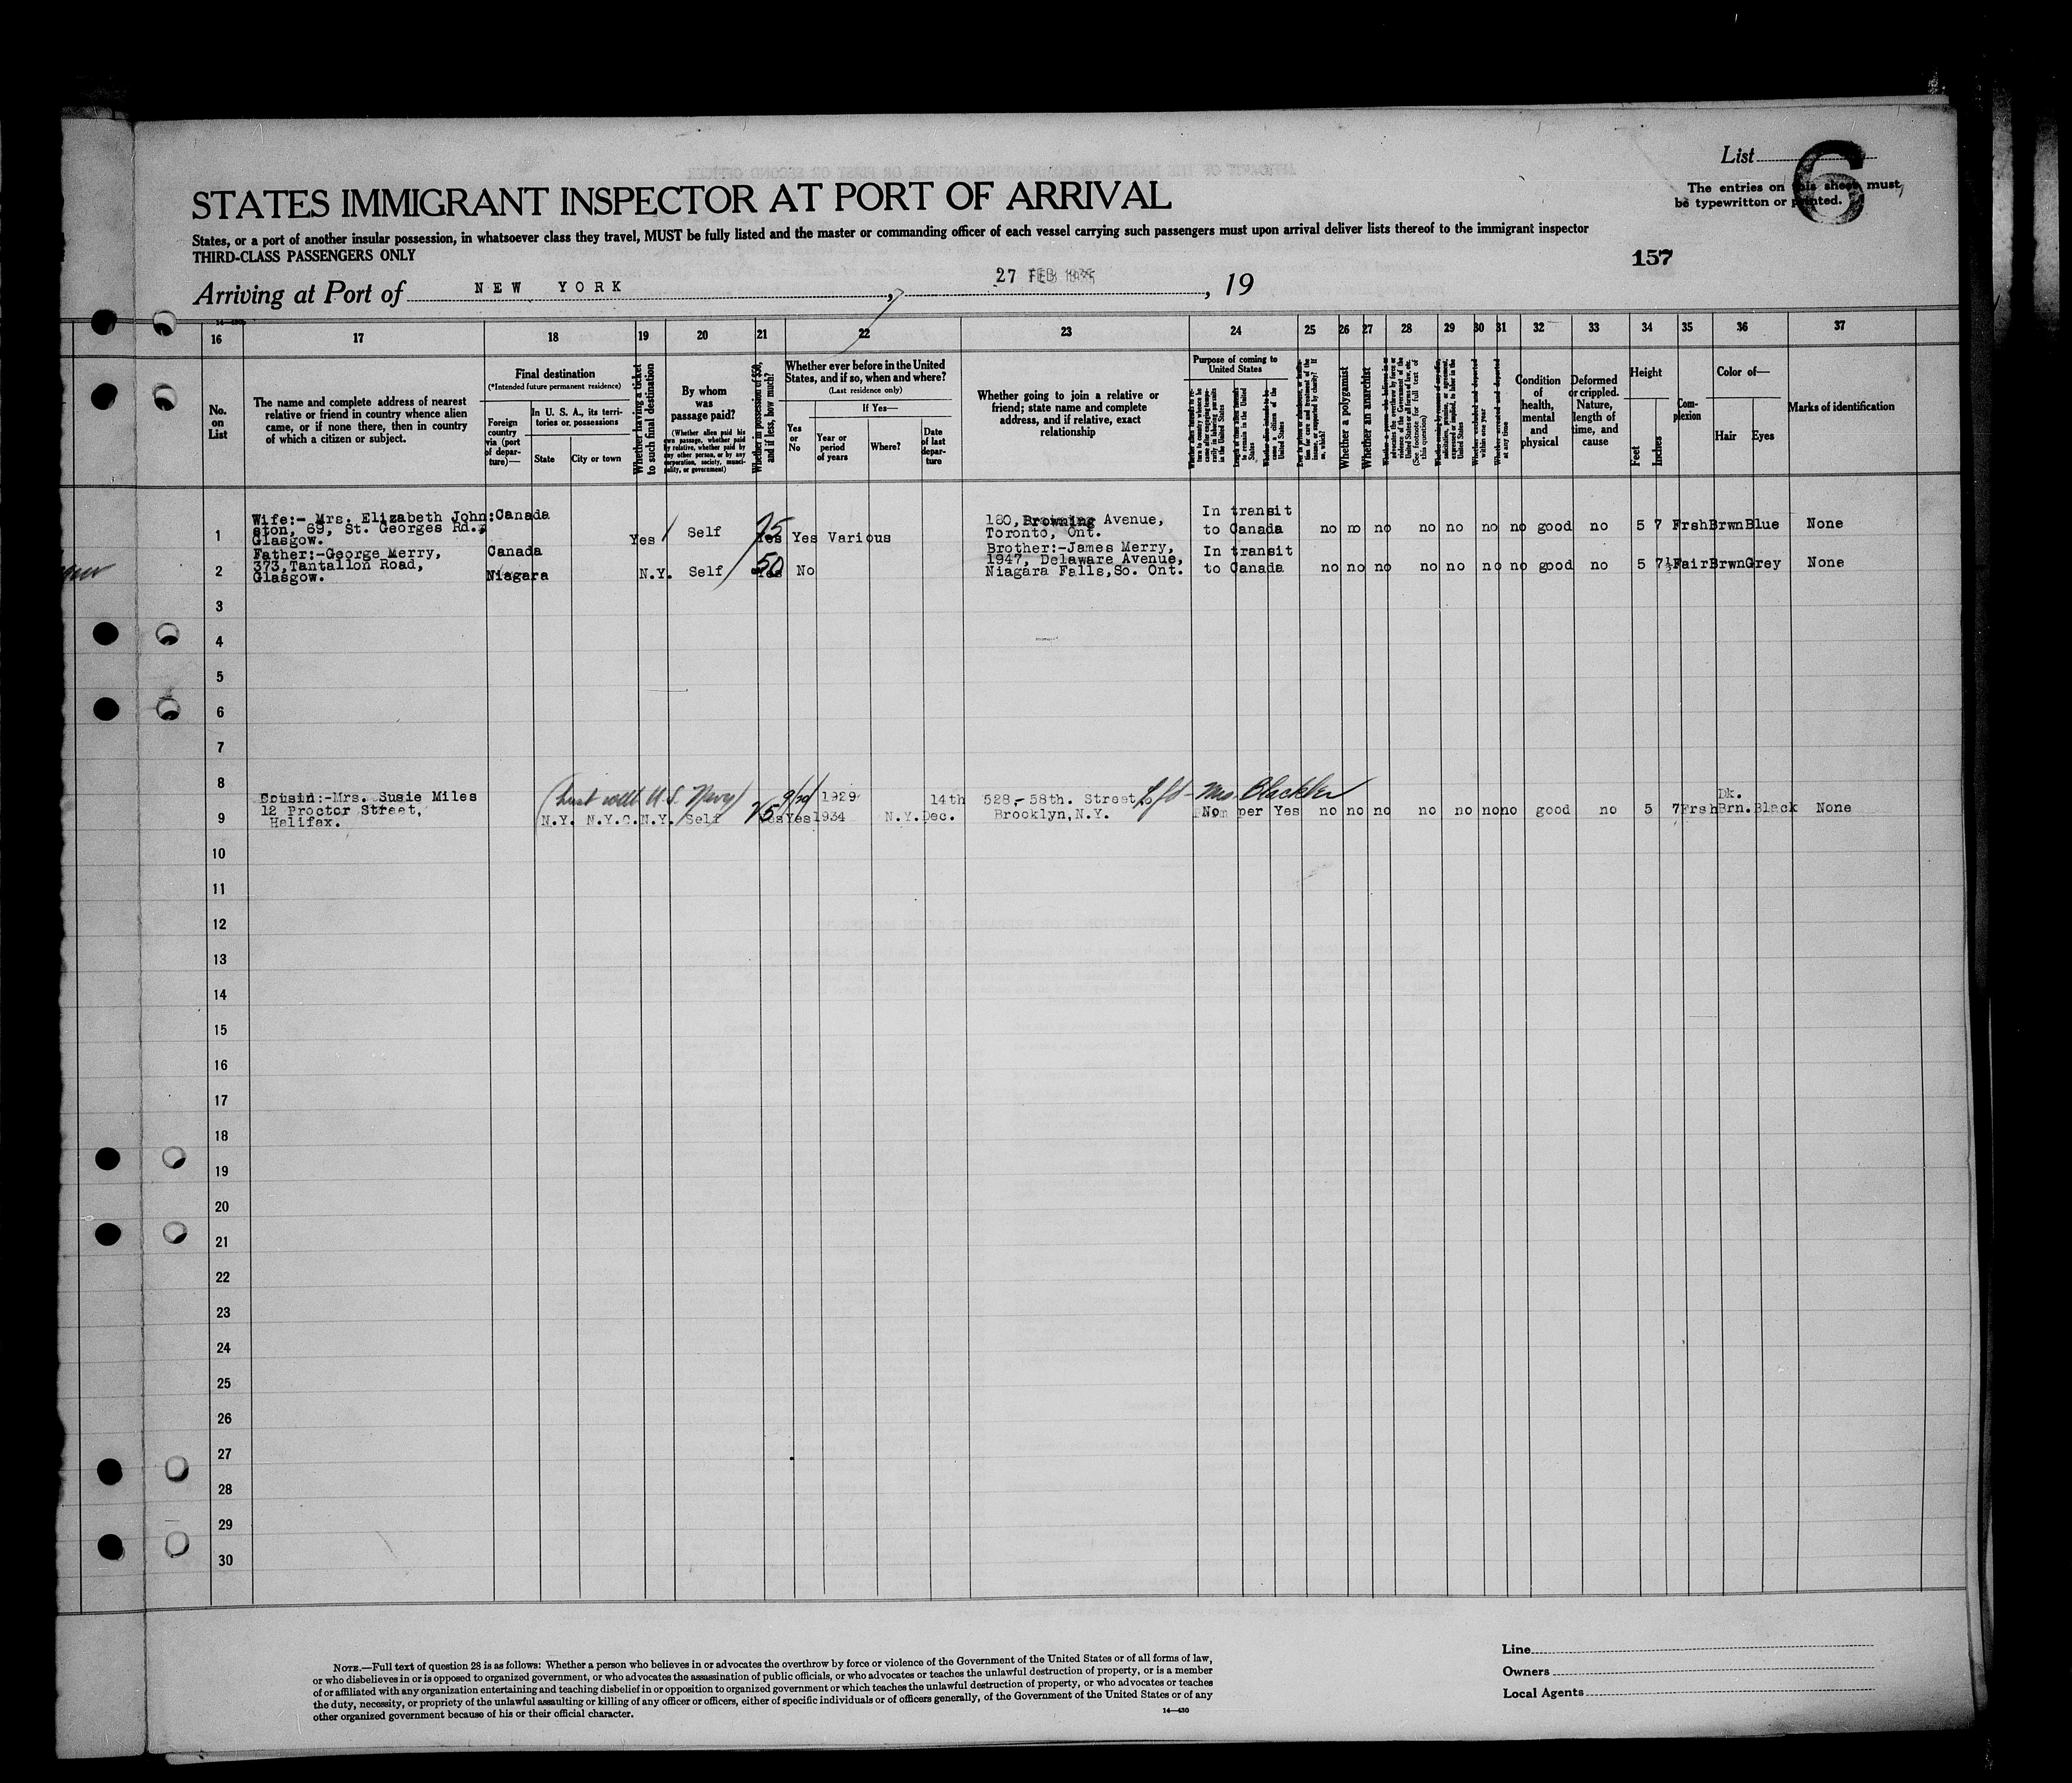 List
6
The entries on this sheet must
be typewritten or printed.
STATES IMMIGRANT INSPECTOR AT PORT OF ARRIVAL
States, or a port of another insular possession, in whatsoever class they travel, MUST be fully listed and the master or commanding officer of each vessel carrying such passengers must upon arrival deliver lists thereof to the immigrant inspector
THIRD-CLASS PASSENGERS ONLY
157
Arriving at Port of NEW YORK, 27 FEB, 19
16 17 18 19 20 21 22 23 24 25 26 27 28 29 30 31 32 33 34 35 36 37
No.
on
List
The name and complete address of nearest
relative or friend in country whence alien
came, or if none there, then in country
of which a citizen or subject.
Final destination
(*Intended future permanent residence)
Foreign
country
via (port
of depar-
ture)—
In U. S. A., its terri-
tories or possessions
State
City or town
Whether having a ticket
to such final destination
By whom
was
passage paid?
(Whether alien paid his
own passage, whether paid
by relative, whether paid by
any other person, or by any
corporation, society, munici-
pality, or government)
Whether in possession of $50,
and if less, how much?
Whether ever before in the United
States, and if so, when and where?
(Last residence only)
Yes
or
No
If Yes—
Year or
period
of years
Where?
Date
of last
depar-
ture
Whether going to join a relative or
friend; state name and complete
address, and if relative, exact
relationship
Purpose of coming to
United States
Whether a polygamist
Whether an anarchist
(See footnote for full text of
this question)
Condition
of
health,
mental
and
physical
Deformed
or crippled.
Nature,
length of
time, and
cause
Height
Feet
Inches
Com-
plexion
Color of—
Hair
Eyes
Marks of identification
1
Wife:- Mrs. Elizabeth John:
ston, 69, St. Georges Rd.,
Glasgow.
Canada
Yes Self 75 Yes Yes Various
180, Browning Avenue,
Toronto, Ont.
In transit
to Canada
no no no no no no no good no 5 7 Frsh Brwn Blue None
2
Father:-George Merry,
373,Tantallon Road,
Glasgow.
Canada
Niagara N.Y. Self 50 Yes No
Brother:-James Merry,
1947, Delaware Avenue,
Niagara Falls,So. Ont.
In transit
to Canada
no no no no no no no good no 5 7½ Fair Brwn Grey None
3
4
5
6
7
8
9
Cousin:-Mrs. Susie Miles
12 Proctor Street,
Halifax.
U.S. Navy)
N.Y. N.Y.C. N.Y. Self 75 Yes Yes
1929
1934 N.Y. 14th
Dec.
528,- 58th. Street,
Brooklyn,N.Y.
Mrs. Blackler
No per Yes no no no no no no no good no 5 7 Frsh Dk.
Brn. Black None
10
11
12
13
14
15
16
17
18
19
20
21
22
23
24
25
26
27
28
29
30
NOTE.—Full text of question 28 is as follows: Whether a person who believes in or advocates the overthrow by force or violence of the Government of the United States or of all forms of law,
or who disbelieves in or is opposed to organized government, or who advocates the assassination of public officials, or who advocates or teaches the unlawful destruction of property, or is a member
of or affiliated with any organization entertaining and teaching disbelief in or opposition to organized government or which teaches the unlawful destruction of property, or who advocates or teaches
the duty, necessity, or propriety of the unlawful assaulting or killing of any officer or officers, either of specific individuals or of officers generally, of the Government of the United States or of any
other organized government because of his or their official character.
14—430
Line
Owners
Local Agents